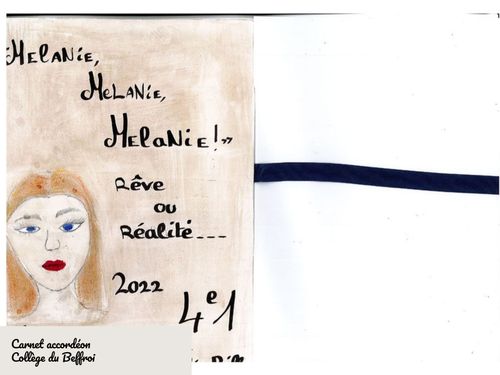 "MELANIE,
MELANIE,
MELANIE!»
Rêve
ou
Réalité...
2022
4e1
Carnet accordéon
Collège du Beffroi